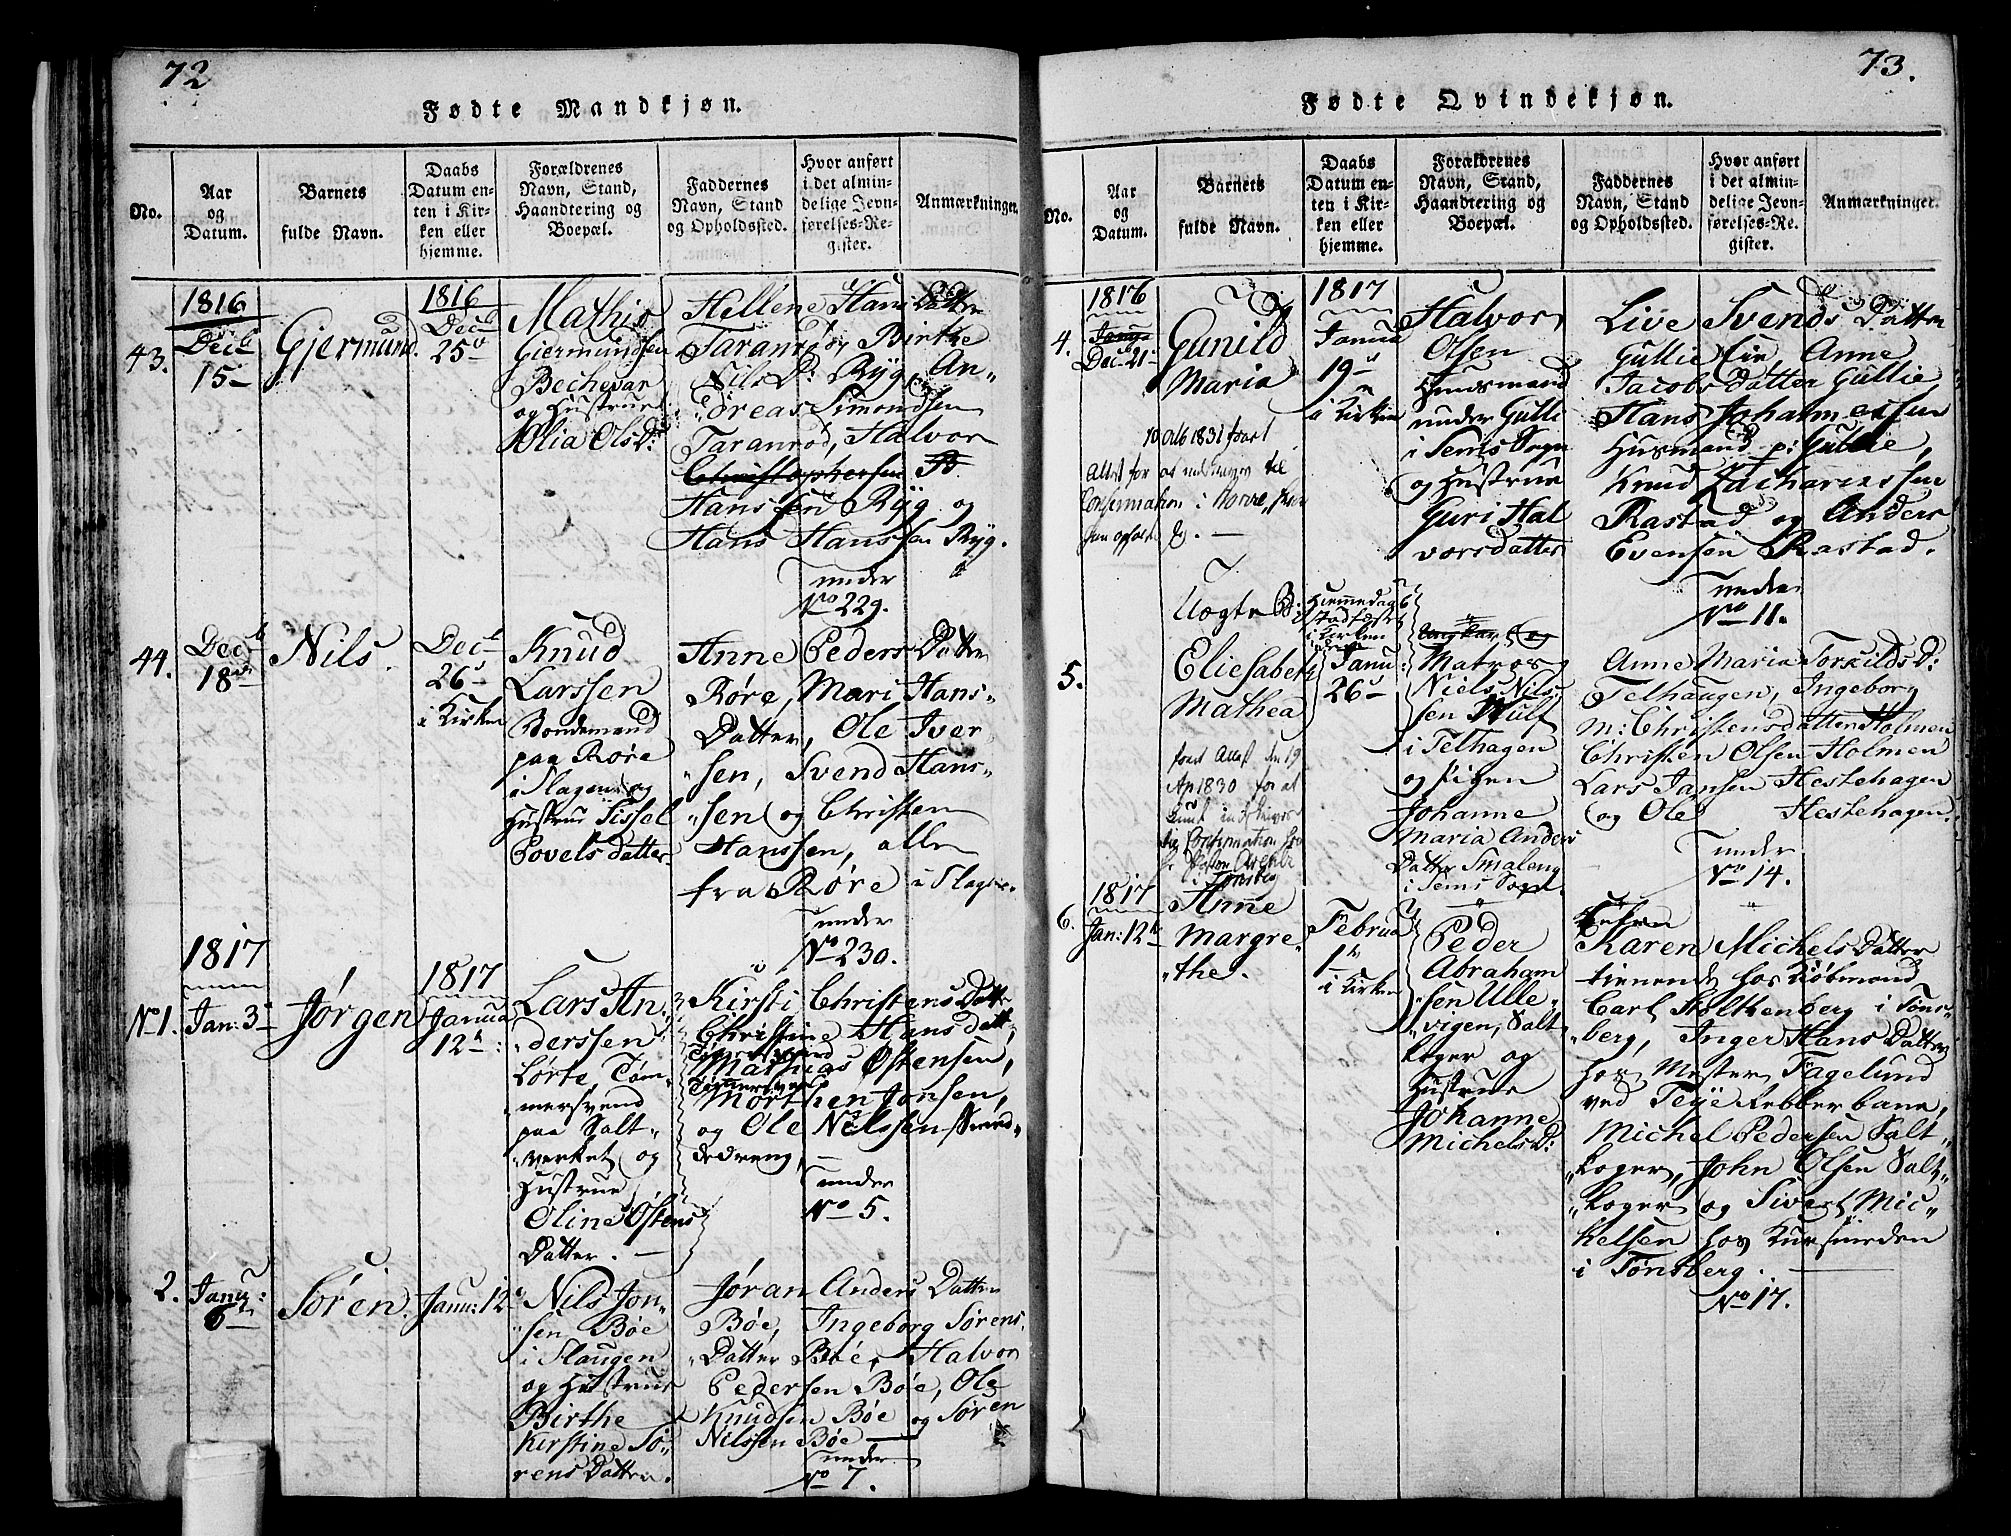 72
Fødte Mandkjøn.
No.
Aar
og
Datum.
Barnets
fulde Navn.
Daabs
Datum en-
ten i Kir-
ken eller
hjemme.
Forældrenes
Navn, Stand,
Haandtering og
Boepæl.
Faddernes
Navn, Stand
og Opholdssted.
Hvor anført
i det almin-
delige Jevn-
førelses-Re-
gister.
Anmærkninger.
43.
1816
Decb
15
Gjermund.
1816
Decb
25
Mathis
Giermundsen
Bechevar
og Hustrue
Olia Ols D:
Hellene Hans Datter
Taranrød, Birthe
Nils D: Ryg, An-
dreas Simondsen
Taranrød, Halvor
Christophersen
Hanssen Ryg og
Hans Hanssen Ryg.
under
No 229.
44.
Decb
18
Nils.
Decb
26
i Kirken
Knud
Larssen
Bondemand
paa Røre
i Slagen og
Hustrue Sissel
Povels datter
Anne Peders Datter
Røre, Mari Hans-
Datter, Ole Iver-
sen, Svend Hans-
sen og Christen
Hanssen, alle
fra Røre i Slagen.
under
No 230.
1817
No 1.
Jan: 3
Jørgen
1817
Janua
12
Lars An-
derssen
Lørte, Tøm-
mersvend
paa Salt-
verket og
Hustrue
Oline Østens
Datter.
Kirsti Christens Datter
Christine Hansdatt,
Mathias Østensen,
Tømmersvend
Morthen Jonsen,
og Ole Nilssen Smed-
dedreng,
under
No 5.
2.
Janu:
6
Søren.
Janu: 12
Nils Jon-
sen Bøe
i Slaugen
og Hustrue
Birthe
Kirstine Sø-
rens Datter.
Jøran Anders Datter
Bøe, Ingeborg Sørens
Datter Bøe, Halvor
Pedersen Bøe, Ole
Knudsen Bøe og Søren
Nilssen Bøe
under
No 7.
73.
Fødte Qvindekjøn.
No.
Aar
og
Datum.
Barnets
fulde Navn.
Daabs
Datum en-
ten i Kir-
ken eller
hjemme.
Forældrenes
Navn, Stand,
Haandtering og
Boepæl.
Faddernes
Navn, Stand
og Opholdssted.
Hvor anført
i det almin-
delige Jevn-
førelses-Re-
gister.
Anmærkninger.
4.
1816
Janu
Dec: 21
Gunild
Maria
1817
Janua
19
i Kirken
Halvor
Olsen
Huusmand
under Gulli
i Sems Sogn
og Hustrue
Guri Hal
vorsdatter
Live Svends Datter
Gullie Eie, Anne
Jacobs datter Gullie,
Hans Johannessen
Husmand p: Gullie,
Knud Zachariessen
Rastad og Anders
Evensen Rastad.
1831
Attest for at til
Confirmation i
under
No 11.
5.
Uægte B:
Eliesabeth
Mathea
Hiemmedøbt
i Kirken
Janu:
26
Ungkar og
Matros
Niels Nils-
sen Wulf
i Telhagen
og Pigen
Johanne
Maria Anders
Datter Smaleng
i Sems Sogn.
Anne Maria Torkilds D:
Telhaugen, Ingeborg
M: Christensdatter Holmen
Christen Olsen Holmen
Lars Jansen Hestehagen
og Ole Hestehagen.
Attest den 19
Ap 1830 for at
Confirmation
i Tønsberg
under
No 14.
6.
1817
Jan: 12
Anne
Margre-
the.
Februa
1
i Kirken
Peder
Abraham
sen Ulle-
vigen, Salt
koger og
Hustrue
Johanne
Michels D:
Karen Michels Datter
tienende hos Kiøbmand
Carl Stoltenberg i Tøns-
berg, Inger Hans Datter
hos Mester Fagelund
ved Teye Rebber bane,
Michel Pedersen Salt
koger, John Olsen Salt
koger og Sivert Mic-
kelsen hos Kursmeden
i Tønsberg.
No 17.